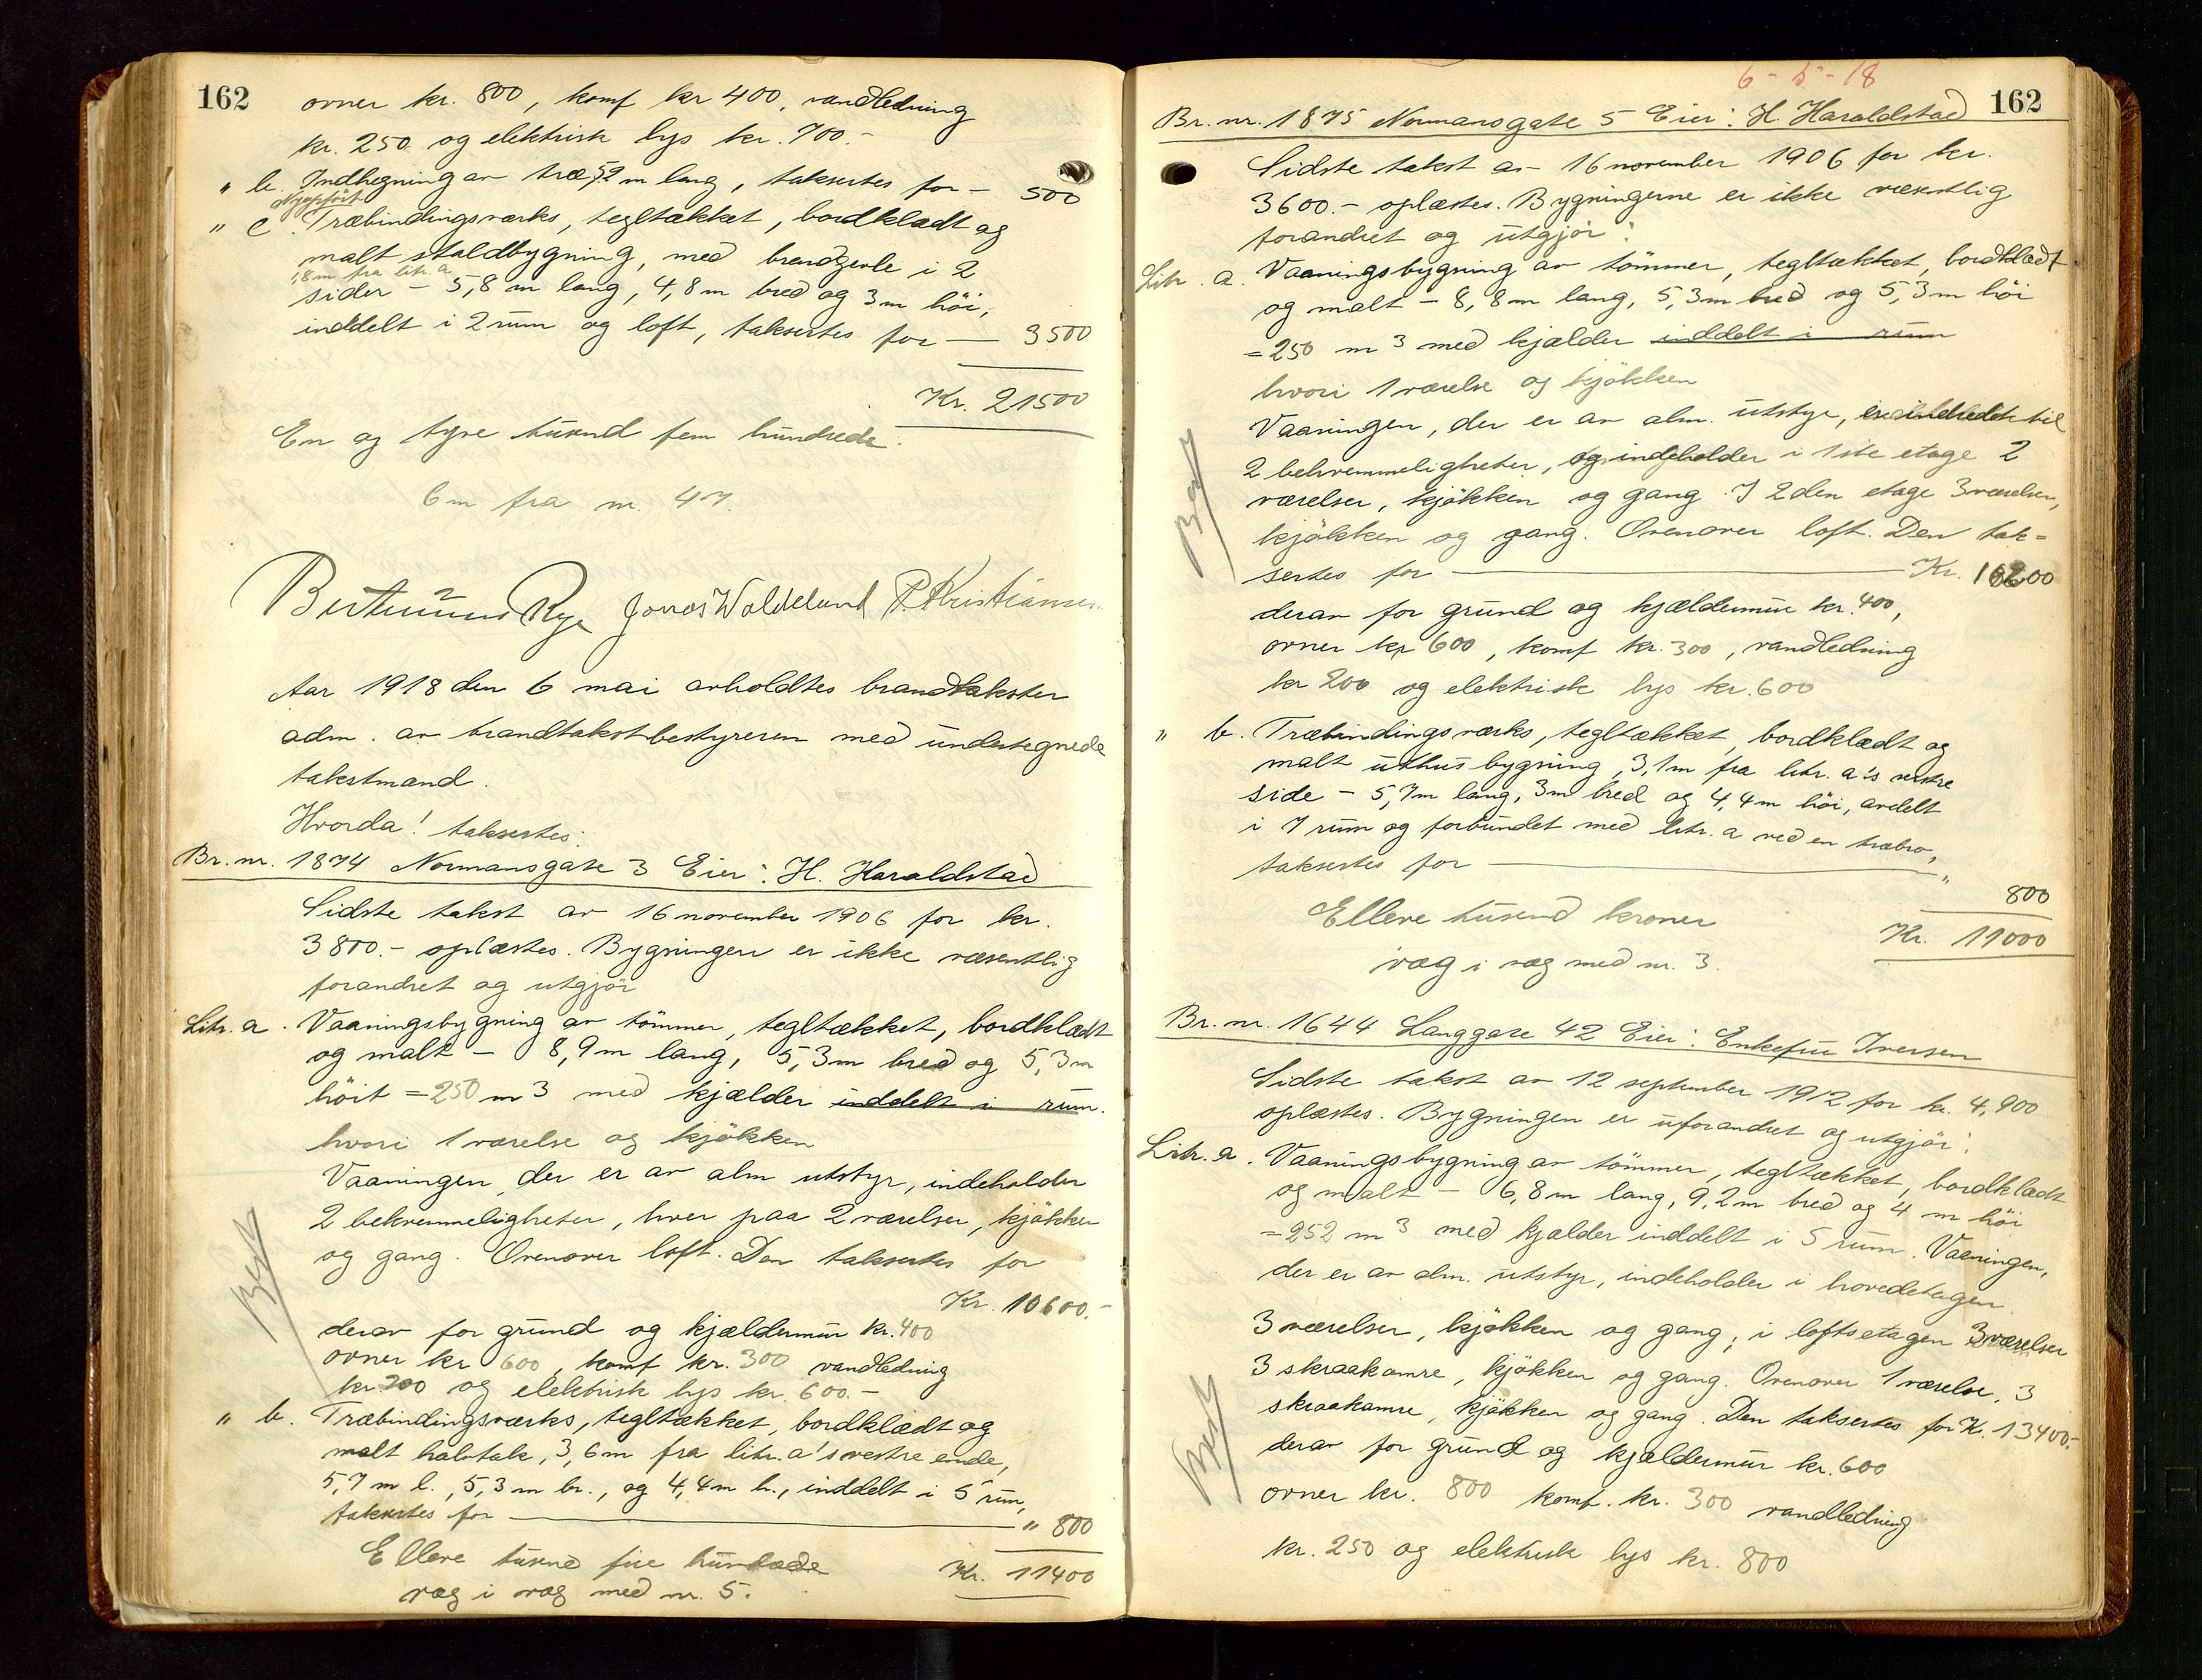 162
ovner kr. 800, komf kr 400, vandledning
kr. 250 og elektrisk lys kr. 700.-
" b. Indhegning av træ, 52 m lang, taksertes for - 500
Nyopført
" c. Træbindingsverks, tegltækket, bordklædt og
malt staldbygning, med brandgevle i 2
1,8 m fra litr. a
sider - 5,8 m lang, 4,8 m bred og 3 m høi,
inddelt i 2 rum og loft, taksertes for — 3500
Kr. 21500
En og tyve tusend fem hundrede.
6 m fra nr. 47.
Rye Jonas Waldeland P. Kristiansen
Aar 1918 den 6 mai avholdtes brandtakster
adm. av brandtakstbestyreren med undertegnede
takstmænd.
Hvorda! taksertes:
Br. nr. 1874 Normansgate 3 Eier: H. Haraldstad
Sidste takst av 16 november 1906 for kr.
3800.- oplæstes. Bygningen er ikke væsentlig
forandret og utgjør
Litr. a. Vaaningsbygning av tömmer, tegltækket, bordklædt
og malt - 8,9 m lang, 5,3 m bred og 5,3 m
höit = 250 m3 med kjælder inddelt i rum.
hvori 1 værelse og kjøkken
Vaaningen, der er av alm utstyr, indeholder
2 bekvemmeligheter, hver paa 2 værelser, kjøkken
og gang. Ovenover loft. Den taksertes for
Kr. 10600.-
Besk
derav for grund og kjældermur kr. 400
ovner kr 600, komf kr. 300 vandledning
kr. 200 og elektrisk lys kr. 600.-
" b. Træbindingsværks, tegltækket, bordklædt og
malt halvtak, 3,6 m fra litr. a's vestre ende,
5,7 m l., 5,3 m br., og 4,4 m h., inddelt i 5 rum,
taksertes for — " 800
Elleve tusend fire hundrede Kr. 11400
væg i væg med nr. 5.
6-5-18
162
Br. nr. 1875 Normansgate 5 Eier: H. Haraldstad
Sidste takst av 16 november 1906 for kr.
3600.- oplæstes. Bygningerne er ikke væsentlig
forandret og utgjør:
Litr. a. Vaaningsbygning av tömmer, tegltækket, bordklædt
og malt - 8,8 m lang, 5,3 m bred og 5,3 m höi
= 250 m3 med kjælder inddelt i rum
hvori 1 værelse og kjøkken
Vaaningen, der er av alm. utstyr, er indredet til
2 bekvemmeligheter, og indeholder i 1ste etage 2
værelser, kjøkken og gang. I 2den etage 3 værelser,
kjøkken og gang. Ovenover loft. Den tak-
sertes for — Kr. 10200
Besk
derav for grund og kjældermur kr. 400,
ovner kr 600, komf kr. 300, vandledning
kr 200 og elektrisk lys kr. 600
" b. Træbindingsværks, tegltækket, bordklædt og
malt uthusbygning, 3,1 m fra litr. a's vestre
side - 5,7 m lang, 3 m bred og 4,4 m høi, avdelt
i 7 rum og forbundet med litr. a ved en træbro,
taksertes for — " 800
Elleve tusend kroner Kr. 11000
væg i væg med nr. 3.
Br. nr. 1644 Langgate 42 Eier: Enkefru Iversen
Sidste takst av 12 september 1912 for kr. 4,900
oplæstes. Bygningen er uforandret og utgjør:
Litr. a. Vaaningsbygning av tömmer, tegltækket, bordklædt
og malt - 6,8 m lang, 9,2 m bred og 4 m höi
= 252 m3 med kjælder inddelt i 5 rum. Vaaningen,
der er av alm. utstyr, indeholder i hovedetagen
3 værelser, kjøkken og gang; i loftsetagen 3 værelser
3 skraakamre, kjøkken og gang. Ovenover 1 værelse, 3
skraakamre, kjøkken og gang. Den taksertes for Kr. 13400.-
Besk
derav for grund og kjældermur kr. 600
ovner kr. 800 komf. kr. 300 vandledning
kr. 250 og elektrisk lys kr. 800